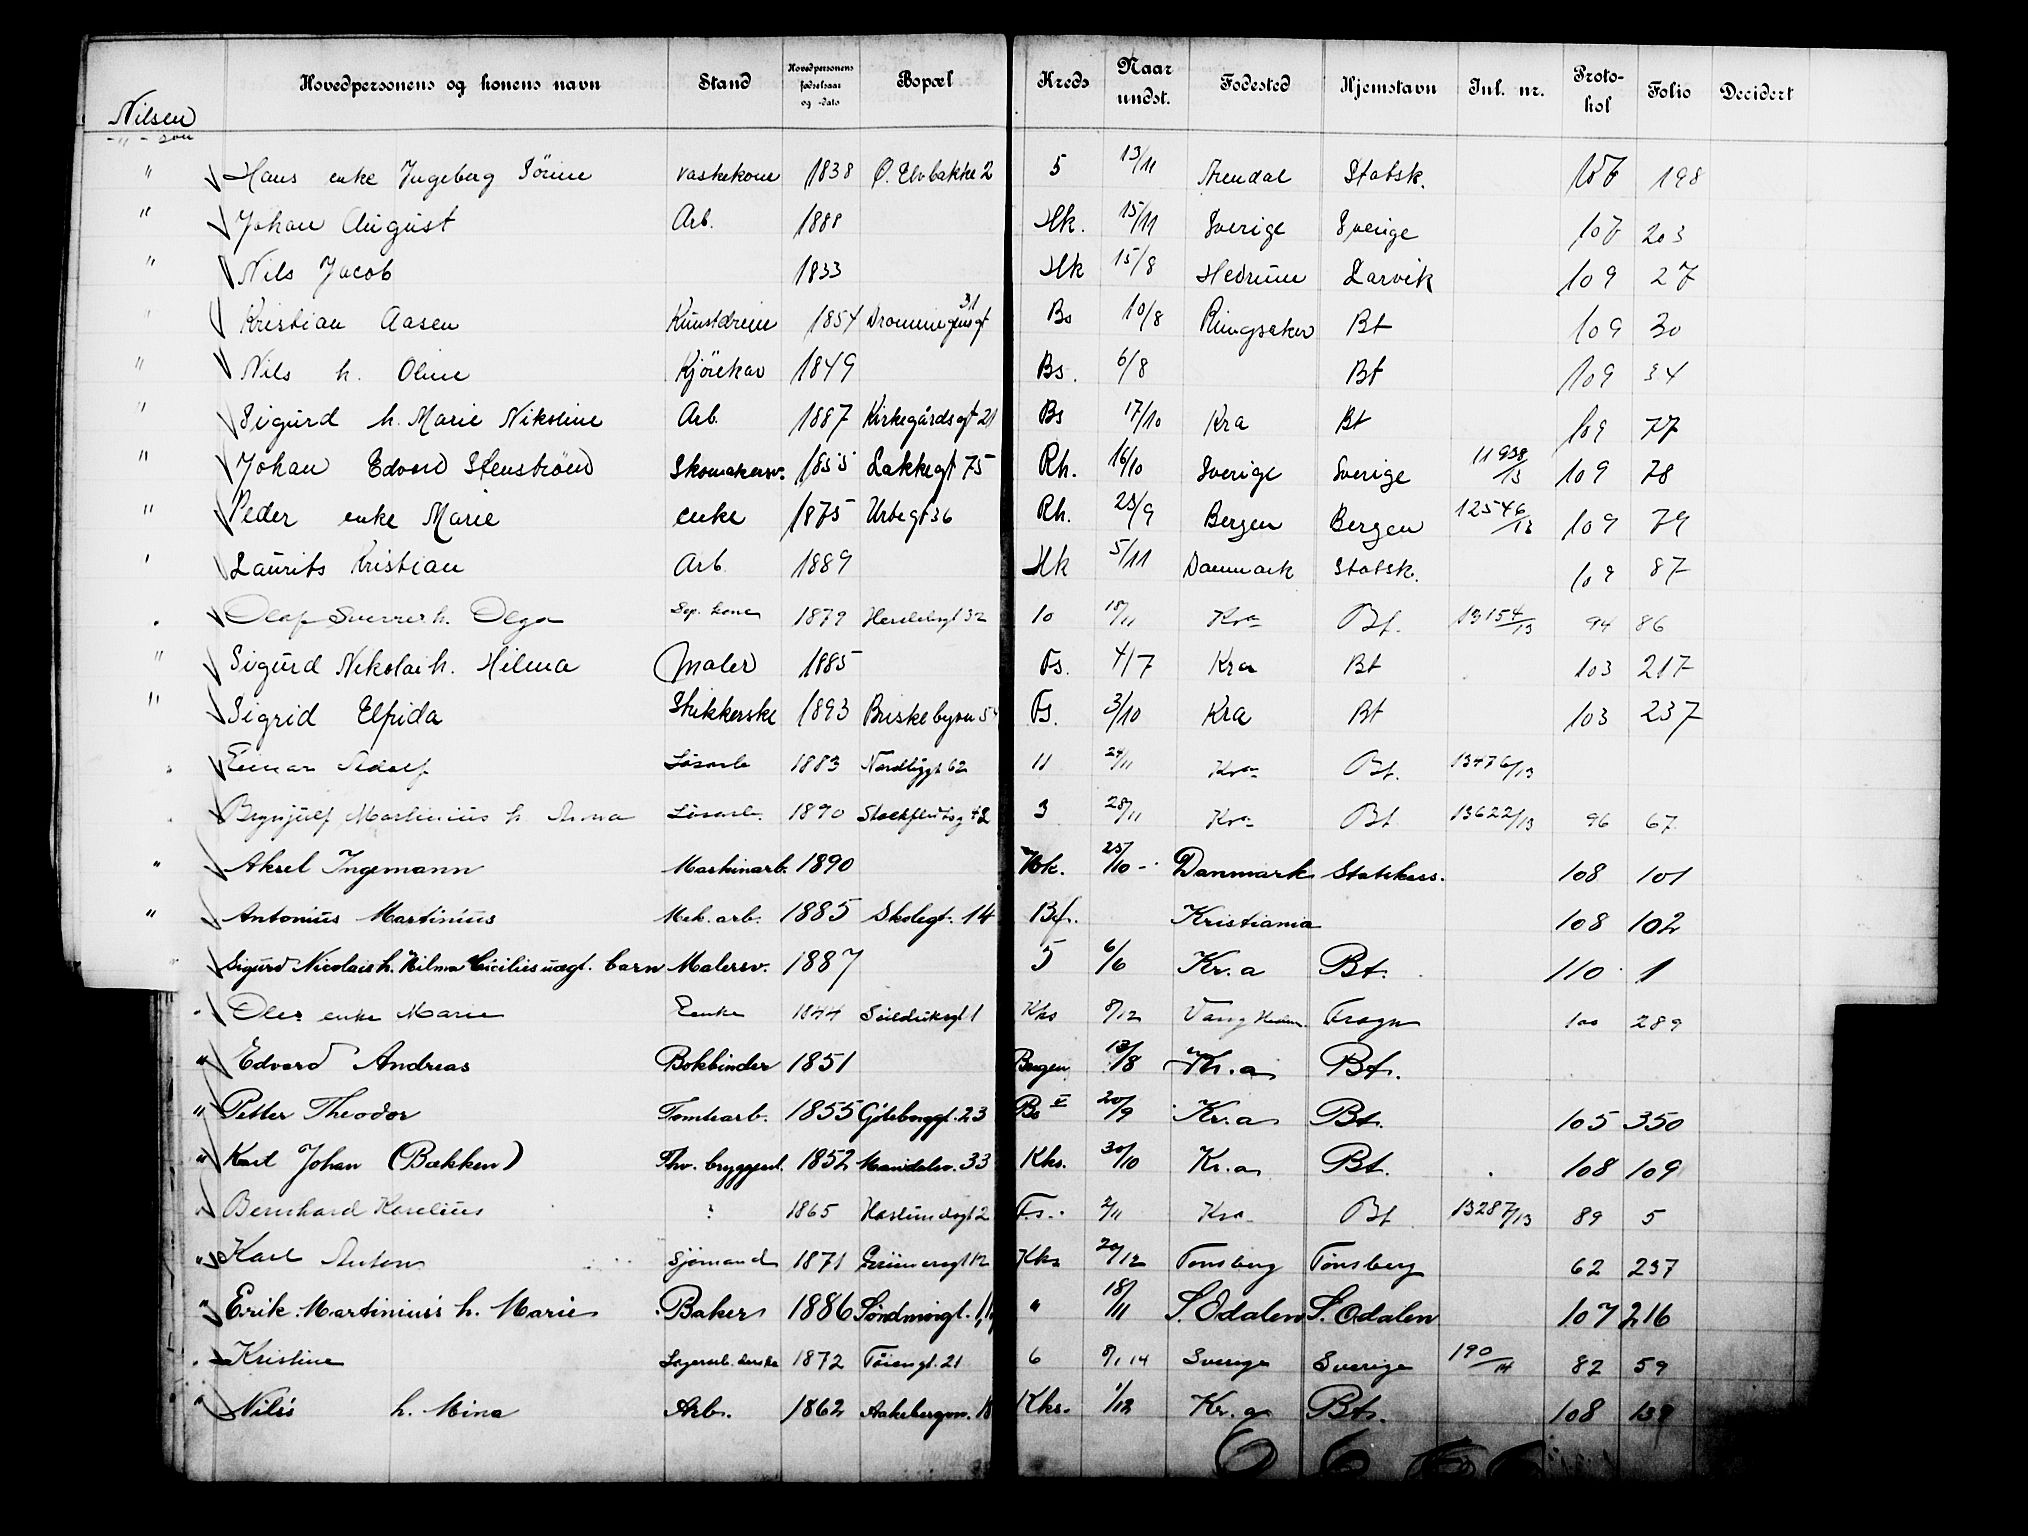 Hovedpersonens og konens navn Stand Hovedpersonens fødselsaar og -dato Bopæl Kreds Naar undst. Fødested Hjemstavn Inl. nr. Protokol Folio Decidert
Nilsen
-"- son
" Hans enke Ingeberg Sørine vaskekone 1838 Ø. Elvbakke 2 5 13/11 Arendal Statsk. 107 198
" Johan August Arb. 1888 Hk. 15/11 Sverige Sverige 107 203
" Nils Jacob 1833 Hk 15/8 Hedrum Larvik 109 27
" Kristian Aasen Kunstdreier 1854 Dronningensgt 31 Bs 10/8 Ringsaker Bt 109 30
" Nils h. Oline Kjørekar 1849 Bs. 6/8 Bt 109 34
" Sigurd h. Marie Nikoline Arb. 1887 Kirkegårdsgt 21 Bs 17/10 Kra Bt 109 77
" Johan Edvard Stenstrøm Skomakersv. 1855 Lakkegt 75 Rh. 16/10 Sverige Sverige 11938/13 109 78
" Peder enke Marie enke 1875 Urtegt 36 Rh. 23/9 Bergen Bergen 12546/13 109 79
" Laurits Kristian Arb. 1889 Hk 5/11 Danmark Statsk. 109 87
" Olaf Sverres h. Olga Sep. kone 1879 32 10 18/11 Kra Bt. 13154/13 94 86
" Sigurd Nikolai h. Hilma Maler 1885 Fs. 4/7 Kra Bt 103 217
" Sigrid Elfrida Strikkerske 1893 Briskebyvn 5 Fs. 3/10 Kra Bt 103 237
" Einar Adolf Løsarb 1883 Nordbygt 62 11 24/11 Kra Bt. 13476/13
" Brynjulf Martinius h Anna Løsarb. 1890 Stockfletsg 42 3 28/11 Kra Bt 13622/13 96 67
" Aksel Ingemann Maskinarb. 1890 Hk. 25/10 Danmark Statskass. 108 101
" Antonius Martinius Mek. arb. 1885 Skolegt. 14 Bf. Kristiania 108 102
Sigurd Nicolais h. Hilma Cicilies uægt. barn Malersv. 1887 5 6/6 Kr.a Bt. 110 1
" Oles enke Marie Enke 1844 Seilduksgt 1 Khs 8/12 Vang Hedm. Frogn 100 289
" Edvard Andreas Bokbinder 1851 Bergen 13/8 Kr.a Bt.
" Petter Theodor Tomtearb. 1855 Göteborggt. 23 Bs V 20/9 Kr.a Bt. 105 350
" Karl Johan (Bakken) Fhv. bryggearb. 1852 Maridalsv. 33 Khs. 30/10 Kr.a Bt. 108 109
" Bernhard Karelius ? 1865 Haslumdsgt 2 Fs. 2/11 Kra Bt 13287/13 89 5
" Karl Anton Sjømand 1871 Grünersgt 12 Khs 20/12 Tønsberg Tønsberg 62 237
" Erik Martinius's h. Marie Baker 1886 Søndmørgt. 1, " 18/11 S. Odalen S. Odalen 107 216
" Kristine Lagerarb.erske 1872 Tøiengt. 21 6 8/1 14 Sverige Sverige 190/14 82 59
" Nils's h. Mina Arb. 1862 Aakebergvn. 18 Khs. 1/12 Kr.a Bt. 108 139